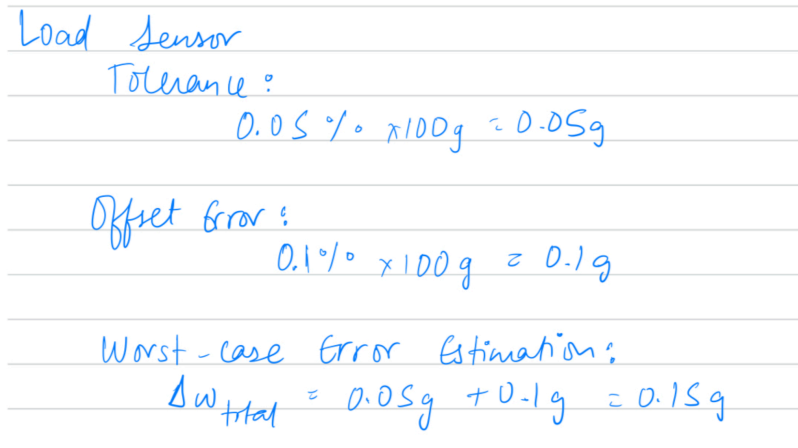 Load Sensor
Tolerance:
0.05% ×100g = 0.05g
Offset Error:
0.1% ×100g = 0.1g
Worst-case Error Estimation:
Δw total = 0.05g + 0.1g = 0.15g